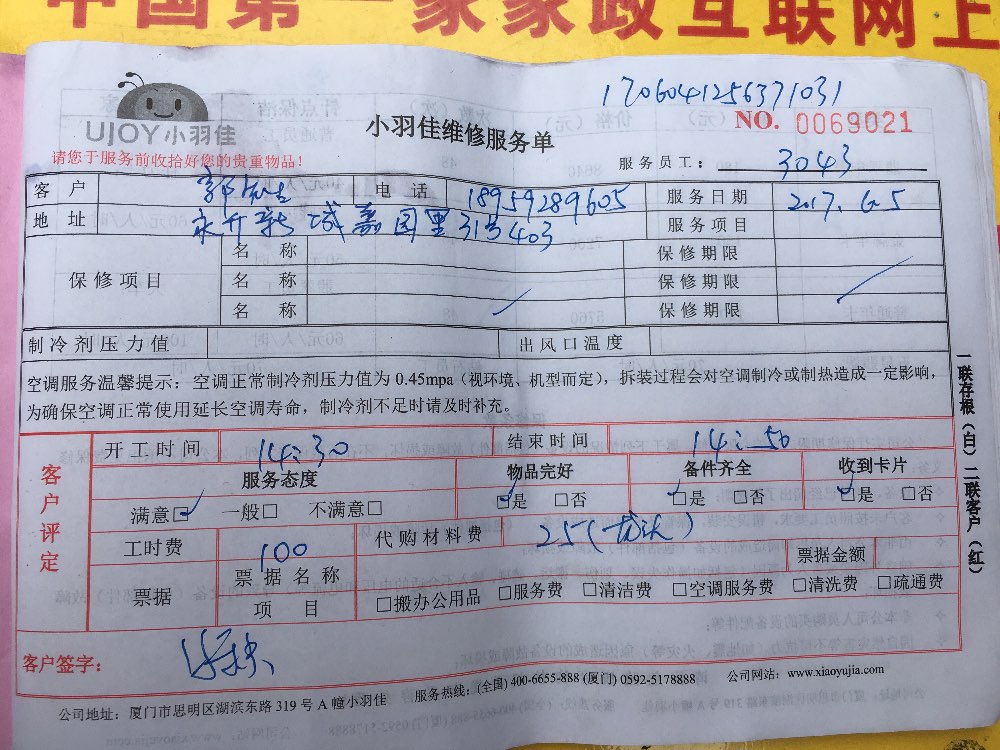 中国第一家家政互联网上
1706041256371031
UJOY小羽佳
小羽佳维修服务单
NO. 0069021
请您于服务前收拾好您的贵重物品！
服务员工： 3043
客户 郭先生 电话 18959289605 服务日期 2017.6.5
地址 永升新城嘉园里313403 服务项目
保修项目
名称 保修期限
名称 保修期限
名称 保修期限
制冷剂压力值 出风口温度
空调服务温馨提示：空调正常制冷剂压力值为0.45mpa（视环境、机型而定），拆装过程会对空调制冷或制热造成一定影响，
为确保空调正常使用延长空调寿命，制冷剂不足时请及时补充。
一联存根（白）二联客户（红）
客户评定
开工时间 14:30 结束时间 14:50
服务态度 物品完好 备件齐全 收到卡片
满意☑ 一般□ 不满意□ ☑是 □否 ☑是 □否 ☑是 □否
工时费 100 代购材料费 25( 票据金额
票据 票据名称
项目 □搬办公用品 □服务费 □清洁费 □空调服务费 □清洗费 □疏通费
客户签字：
公司地址：厦门市思明区湖滨东路319号A幢小羽佳 服务热线：(全国) 400-6655-888 (厦门) 0592-5178888 公司网站：www.xiaoyujia.com